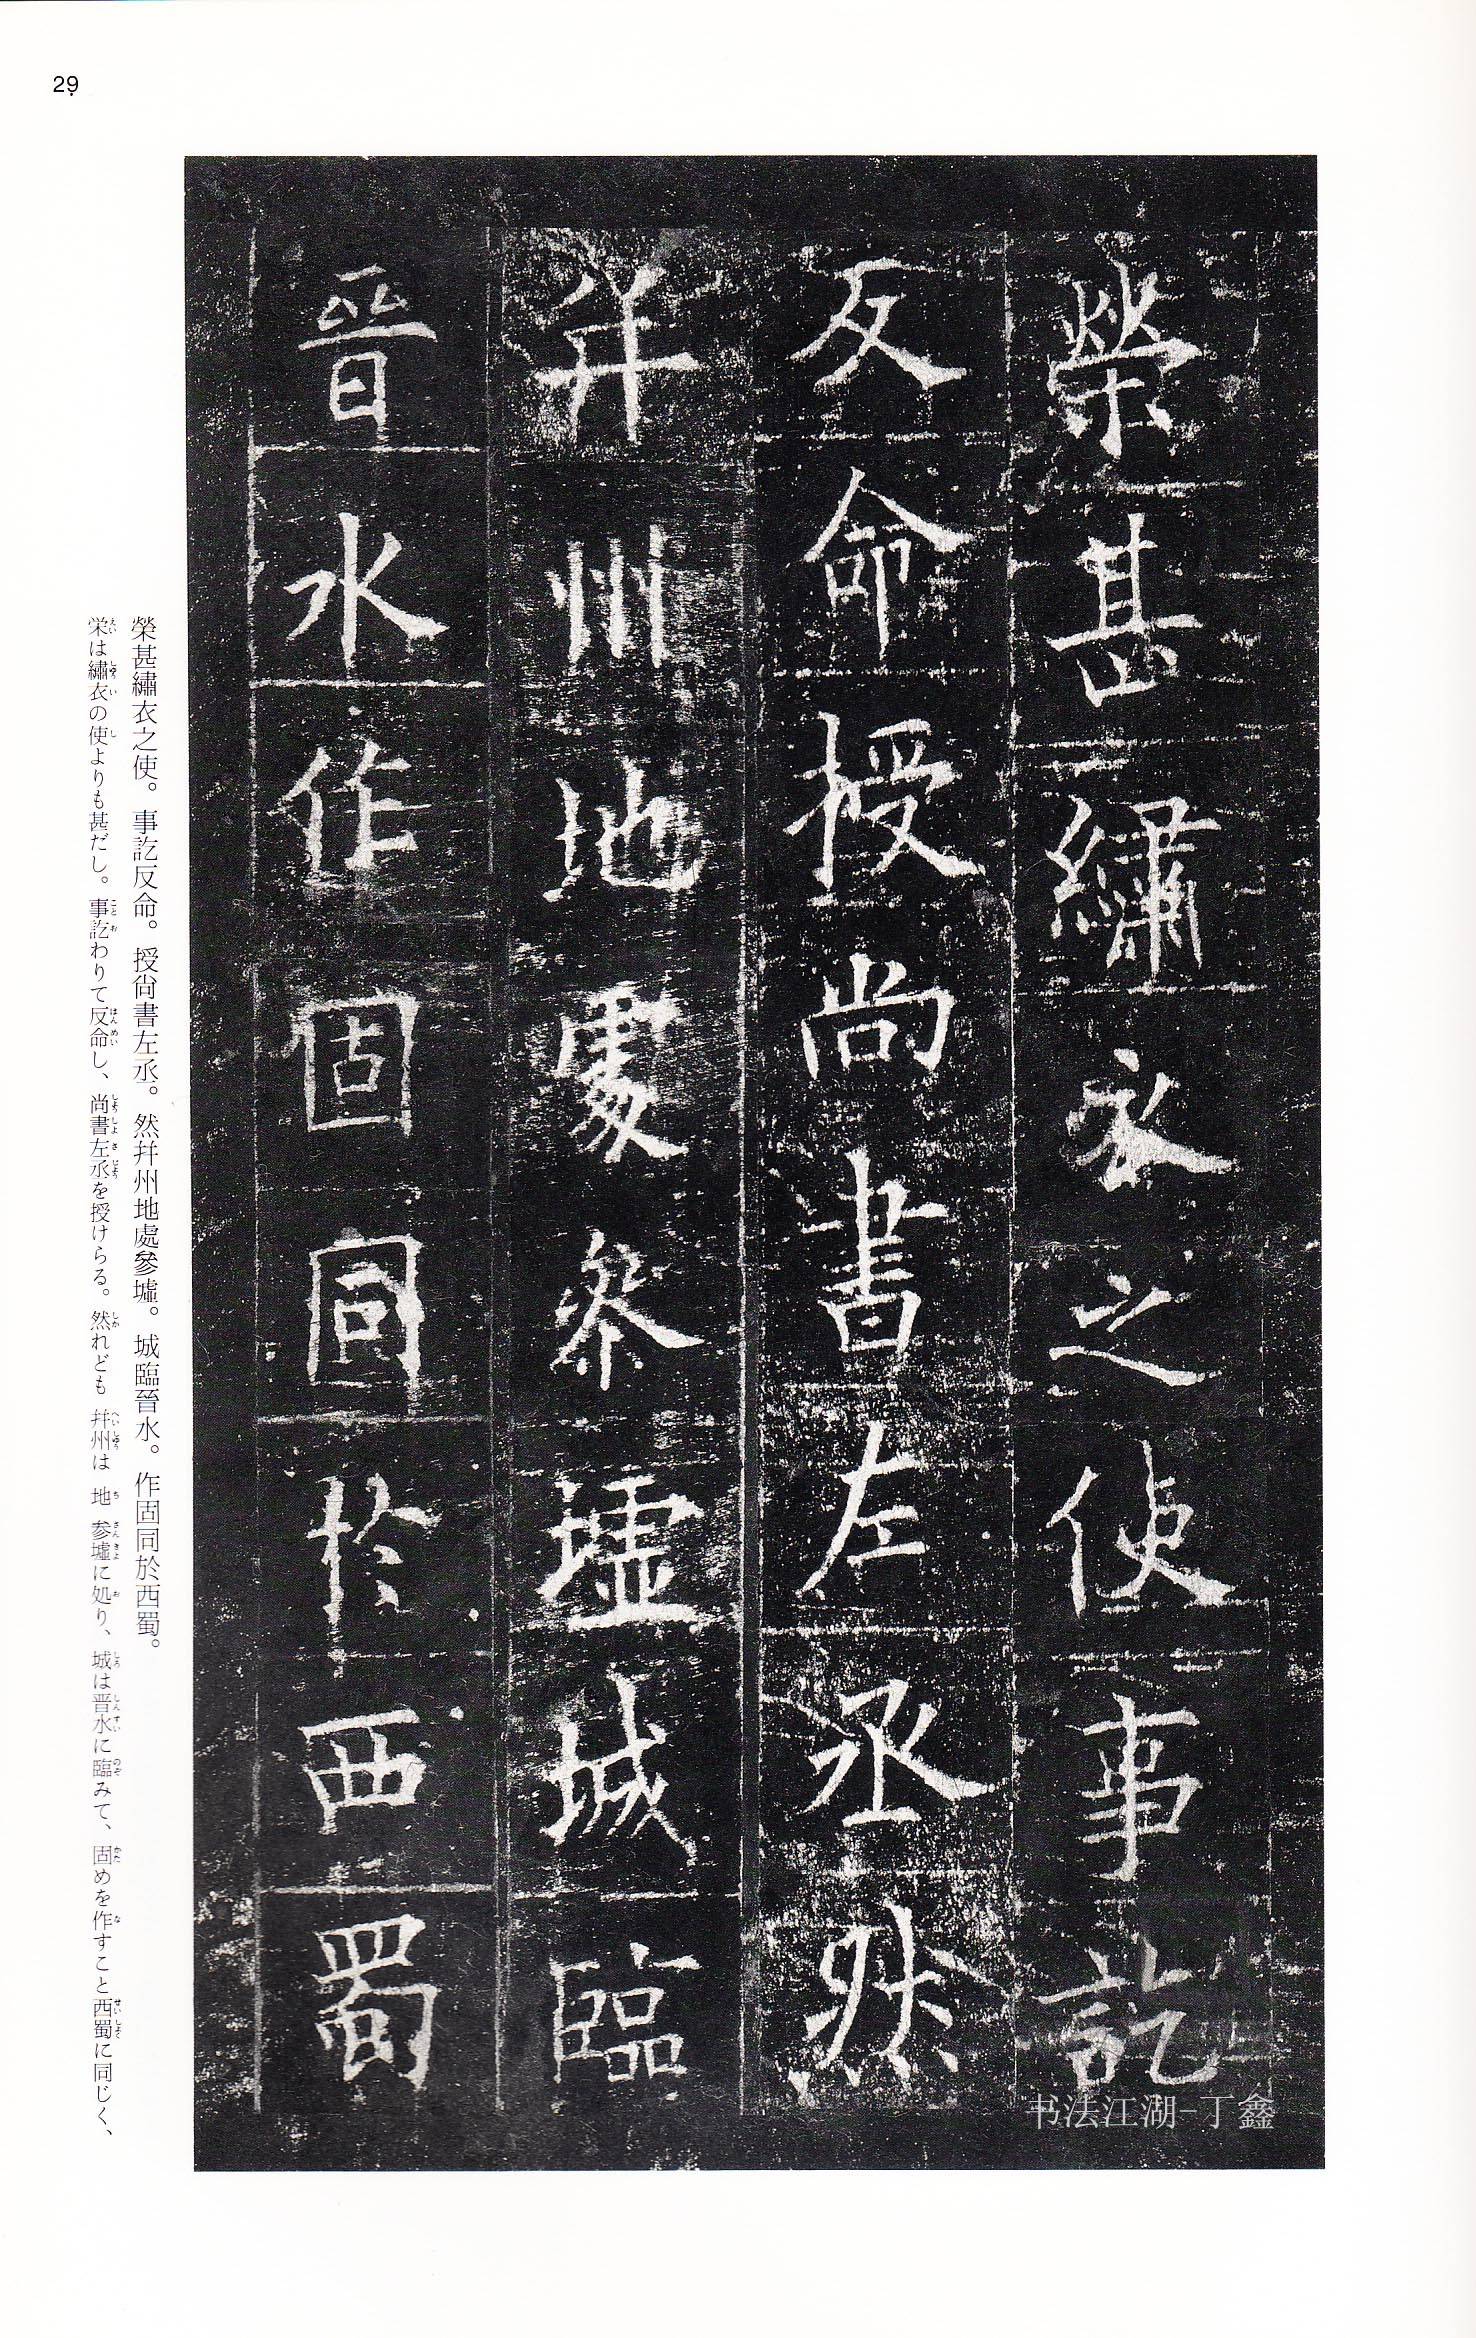 29
榮甚繡衣之使事訖
反命授尚書左丞然
并州地處參墟城臨
晉水作固同於西蜀
书法江湖-丁鑫
榮甚繡衣之使。事訖反命。授尙書左丞。然幷州地處參墟。城臨晉水。作固同於西蜀。
栄は繡衣の使よりも甚だし。事訖わりて反命し、尚書左丞を授けらる。然れども幷州は地参墟に処り、城は晋水に臨みて、固めを作すこと西蜀に同じく、